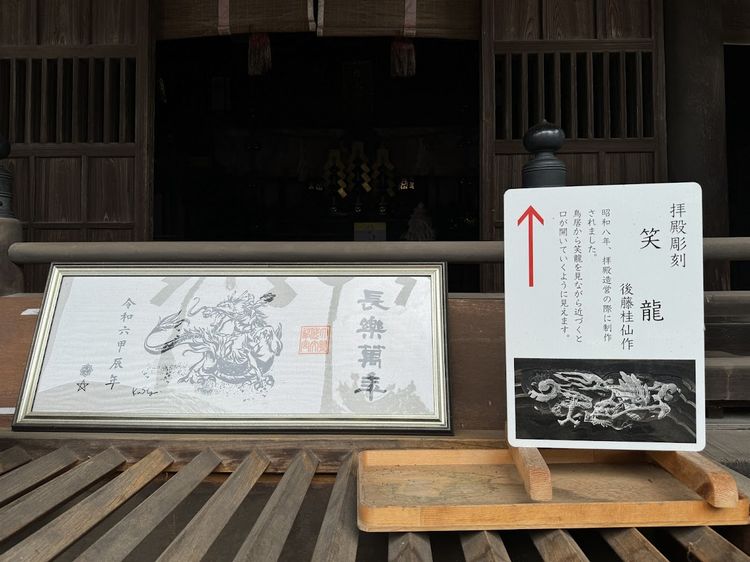 拝殿彫刻
笑龍
後藤桂仙作
昭和八年、拝殿造営の際に制作
されました。
鳥居から笑龍を見ながら近づくと
口が開いていくように見えます。
長樂萬年
令和六甲辰年